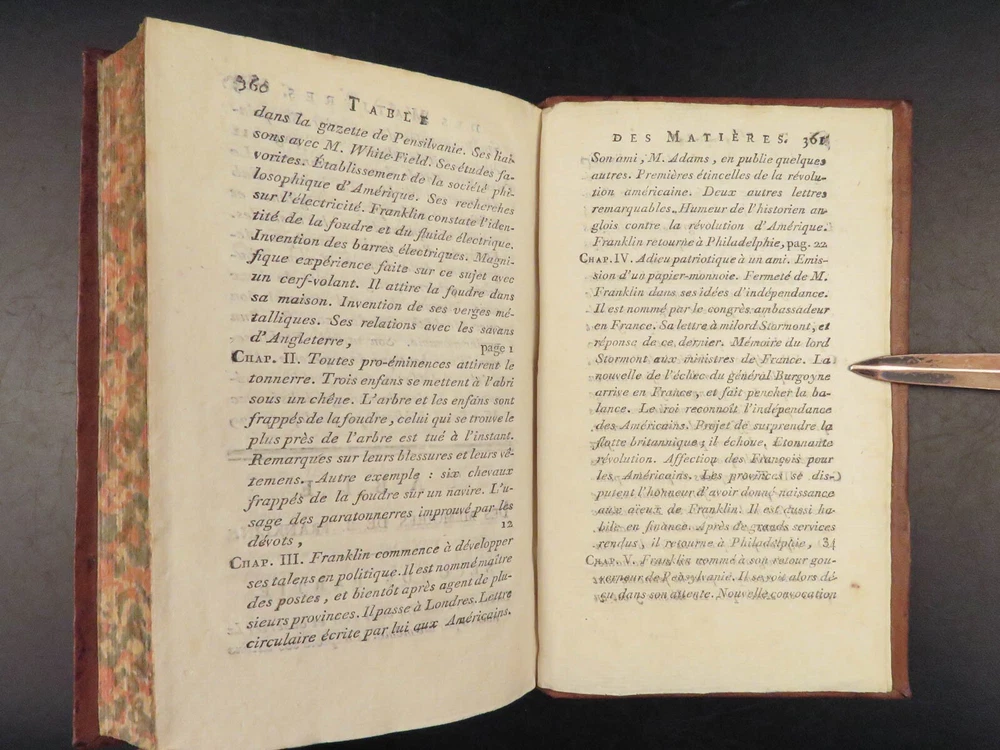 360 TABLE
dans la gazette de Pensilvanie. Ses liai-
sons avec M. White-Field. Ses études fa-
vorites. Établissement de la société phi-
losophique d'Amérique. Ses recherches
sur l'électricité. Franklin constate l'iden-
tité de la foudre et du fluide électrique.
Invention des barres électriques. Magni-
fique expérience faite sur ce sujet avec
un cerf-volant. Il attire la foudre dans
sa maison. Invention de ses verges mé-
talliques. Ses relations avec les savans
d'Angleterre, page 1
CHAP. II. Toutes pro-éminences attirent le
tonnerre. Trois enfans se mettent à l'abri
sous un chêne. L'arbre et les enfans sont
frappés de la foudre, celui qui se trouve le
plus près de l'arbre est tué à l'instant.
Remarques sur leurs blessures et leurs vê-
temens. Autre exemple : six chevaux
frappés de la foudre sur un navire. L'u-
sage des paratonnerres improuvé par les
dévots, 12
CHAP. III. Franklin commence à développer
ses talens en politique. Il est nommé maître
des postes, et bientôt après agent de plu-
sieurs provinces. Il passe à Londres. Lettre
circulaire écrite par lui aux Américains.
DES MATIÈRES. 361
Son ami, M. Adams, en publie quelques
autres. Premières étincelles de la révolu-
tion américaine. Deux autres lettres
remarquables. Humeur de l'historien an-
glois contre la révolution d'Amérique.
Franklin retourne à Philadelphie, pag. 22
CHAP. IV. Adieu patriotique à un ami. Emis-
sion d'un papier-monnoie. Fermeté de M.
Franklin dans ses idées d'indépendance.
Il est nommé par le congrès ambassadeur
en France. Sa lettre à milord Stormont, et
réponse de ce dernier. Mémoire du lord
Stormont aux ministres de France. La
nouvelle de l'échec du général Burgoyne
arrive en France, et fait pencher la ba-
lance. Le roi reconnoît l'indépendance
des Américains. Projet de surprendre la
flotte britannique ; il échoue. Etonnante
révolution. Affection des François pour
les Américains. Les provinces se dis-
putent l'honneur d'avoir donné naissance
aux aïeux de Franklin. Il est aussi ha-
bile en finance. Après de grands services
rendus, il retourne à Philadelphie, 34
CHAP. V. Franklin nommé à son retour gou-
verneur de Pensylvanie. Il se voit alors dé-
çu dans son attente. Nouvelle convocation